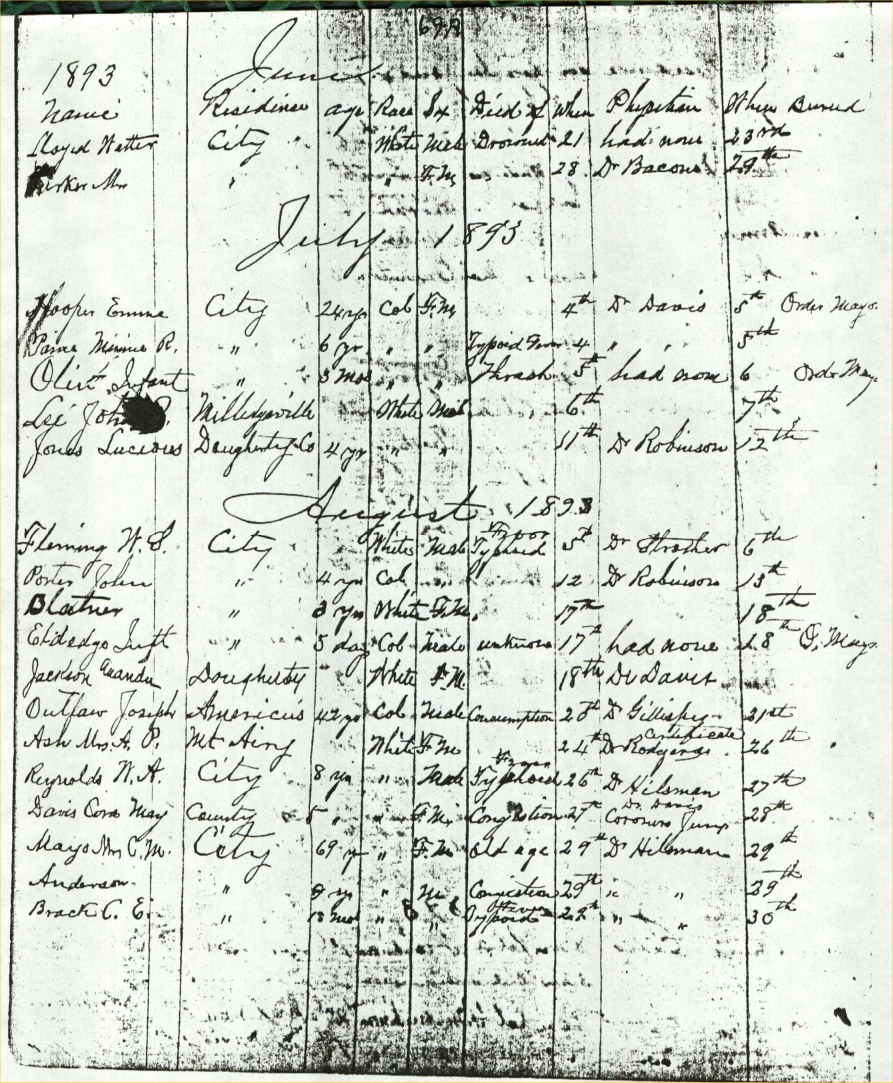 69A
1893 June
Name Residince age Race Sx Died of When Physitian When Buried
Floyd Walter City " White Male Drowned 21 had none 23rd
Parker Mrs " " F.M, 28. Dr Bacon 29th
July 1893
Hooper Emma City 24 yrs Col F.M, 4th Dr Davis 5th Order Mayo.
Minnie R. " 6 yr " " Typoid Fever 4 " " 5th
Infant " 3 Mos " " Thrash 5th had none 6 Order Mayo
Lee John Milledgeville White Male 6th 7th
Jones Lucious Dougherty Co 4 yr " " 11th Dr Robinson 12th
August 1893
Fleming W. S. City White Male Typhoid 5th Dr Strother 6th
Porter John " 4 yrs Col " 12 Dr Robinson 13th
" 3 yrs White F.M. 17th 18th
Inft " 5 days Col Male unknown 17th had none 18th O, Mayo
Jackson Amanda Dougherty White F.M. 18th Dr Davis
Outlaw Joseph Americus 42 yrs Col Male Consumption 20th Dr Gillespy 21st
Ash Mrs. A. P. Mt Airy White F.M 24th Dr Certificate 26th
Reynolds W. A. City 8 yrs " Male Typhoid 26th Dr Hilsman 27th
Davis Cora May County 5 " " F.M. Congestion 27th Dr. Davis Coroners Jury 28th
Mayo Mrs C. M. City 69 yr " F.M Old age 29th Dr Hilsman 29th
Anderson " " M 29th " " 29th
Brack C. E. " 18 Mos " " Typoid Fever 29th " " 30th